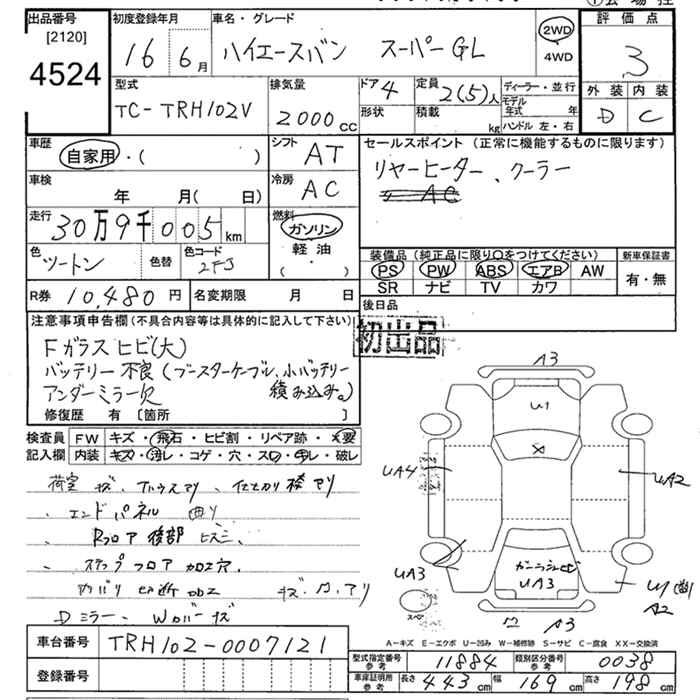 出品番号
[2120]
4524
初度登録年月
16年 6月
車名・グレード
ハイエースバン スーパーGL
2WD
4WD
評価点
3
外装 内装
D C
型式
TC-TRH102V
排気量
2000cc
ドア 4
形状
定員 2(5)人
積載 kg
ディーラー・並行
モデル年式 年
ハンドル 左・右
車歴
自家用・( )
シフト AT
車検
年 月( 日)
冷房 AC
走行
30万9千005km
燃料
ガソリン
軽油
( )
色
ツートン
色替
色コード
2FJ
R券 10,480円
名変期限 月 日
セールスポイント (正常に機能するものに限ります)
リヤーヒーター、クーラー
AC
装備品(純正品に限り○をつけてください)
PS PW ABS エアB AW
SR ナビ TV カワ
新車保証書
有・無
後日品
初出品
注意事項申告欄(不具合内容等は具体的に記入して下さい)
Fガラスヒビ(大)
バッテリー不良(ブースターケーブル、小バッテリー
アンダーミラー欠 積み込み。)
修復歴 有 [箇所 ]
検査員
記入欄
FW キズ・飛石・ヒビ割・リペア跡・×要
内装 キズ・汚レ・コゲ・穴・スレ・キレ・破レ
エンドパネル 曲り
Rフロア後部
ステップフロア 加工穴
Dミラー、Wカバーキズ
A3
U1
X
UA4
UA2
UA3
UA3
U1
A2
A3
スペア
A-キズ E-エクボ U-凹み W-補修跡 S-サビ C-腐食 XX-交換済
車台番号 TRH102-0007121
登録番号
型式指定番号 参考 11884
類別区分番号 参考 0038
車庫証明用 参考 長さ 443cm 幅 169cm 高さ 198cm